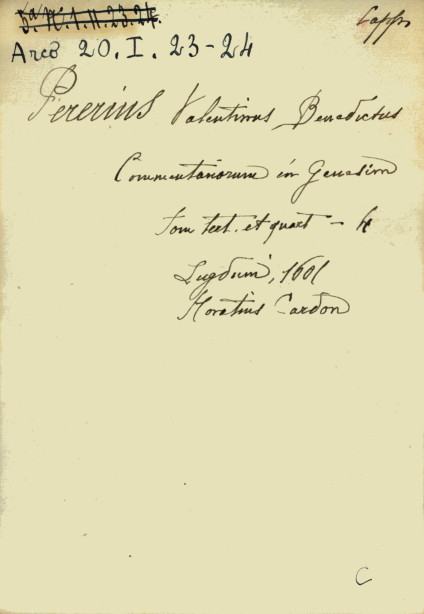 5ª N. 1. II. 23. 24.
Capp.
Arco 20. I. 23-24
Pererius Valentinus Benedictus
Commentariorum in Genesim
tom tert. et quart - 4
Lugduni, 1601
Horatius Cardon
C